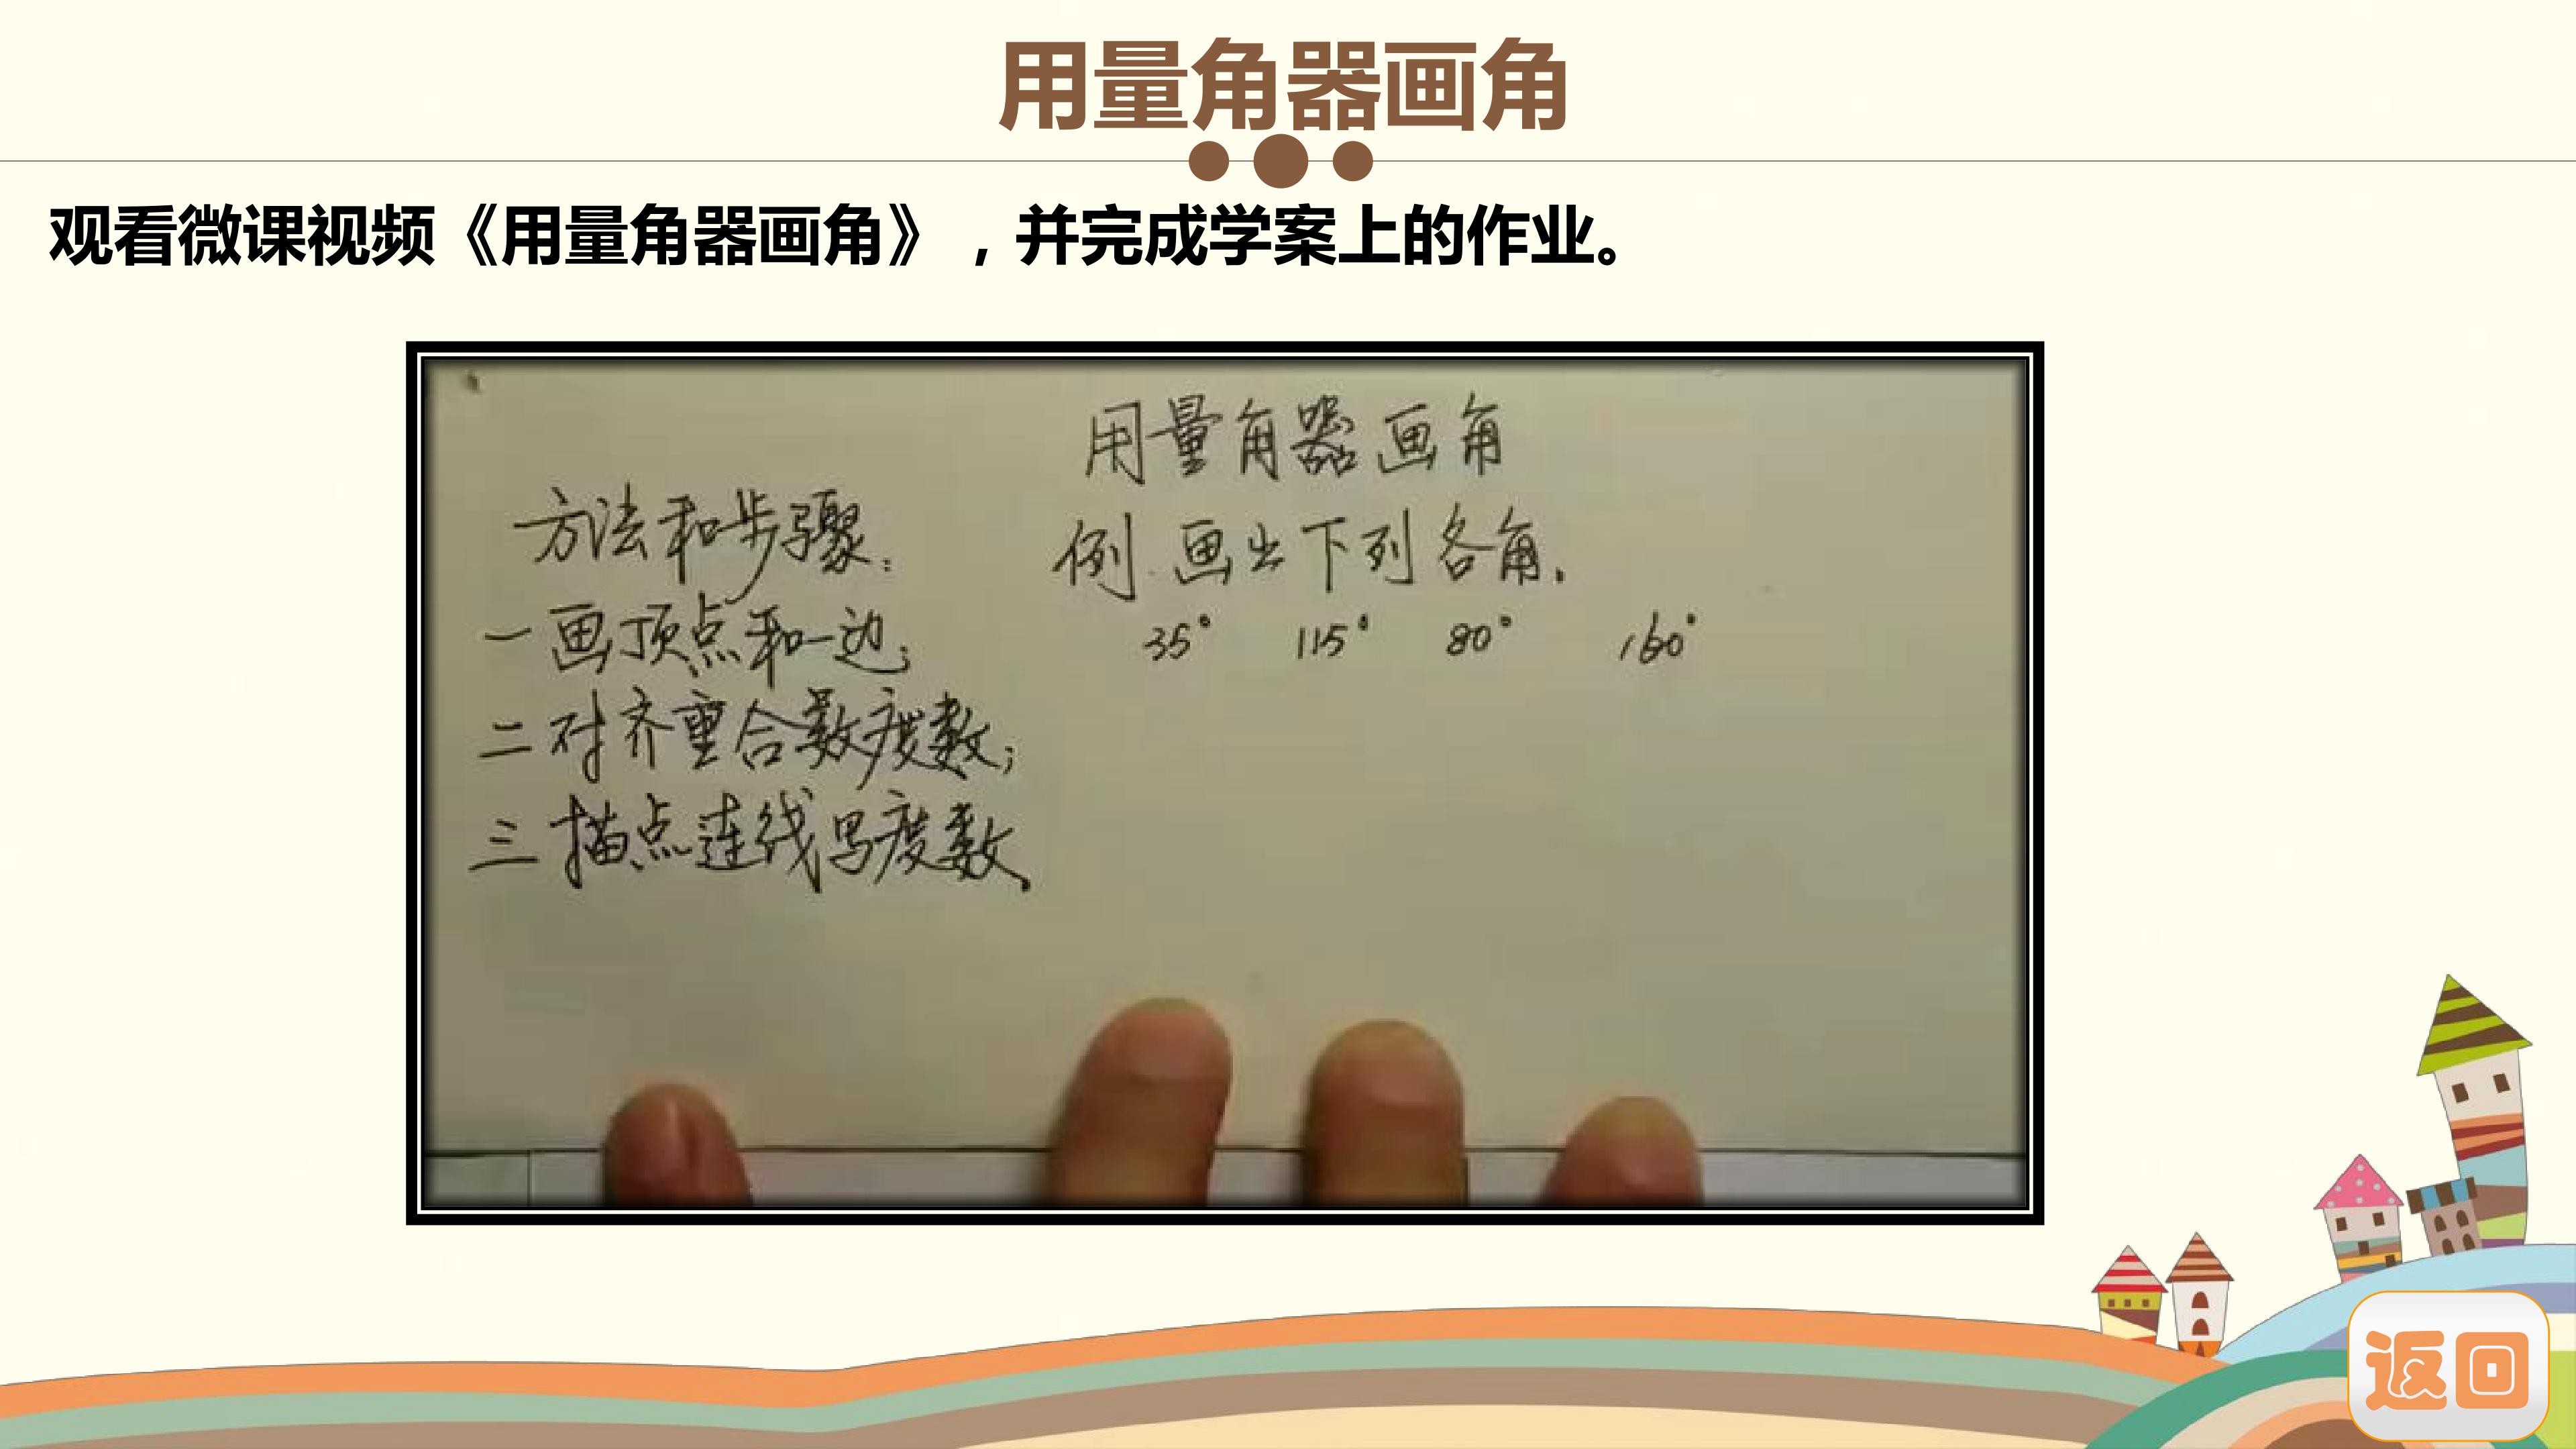 用量角器画角
观看微课视频《用量角器画角》，并完成学案上的作业。
用量角器画角
方法和步骤：
例.画出下列各角.
一画顶点和一边；
35° 115° 80° 160°
二对齐重合数度数；
三描点连线写度数.
返回